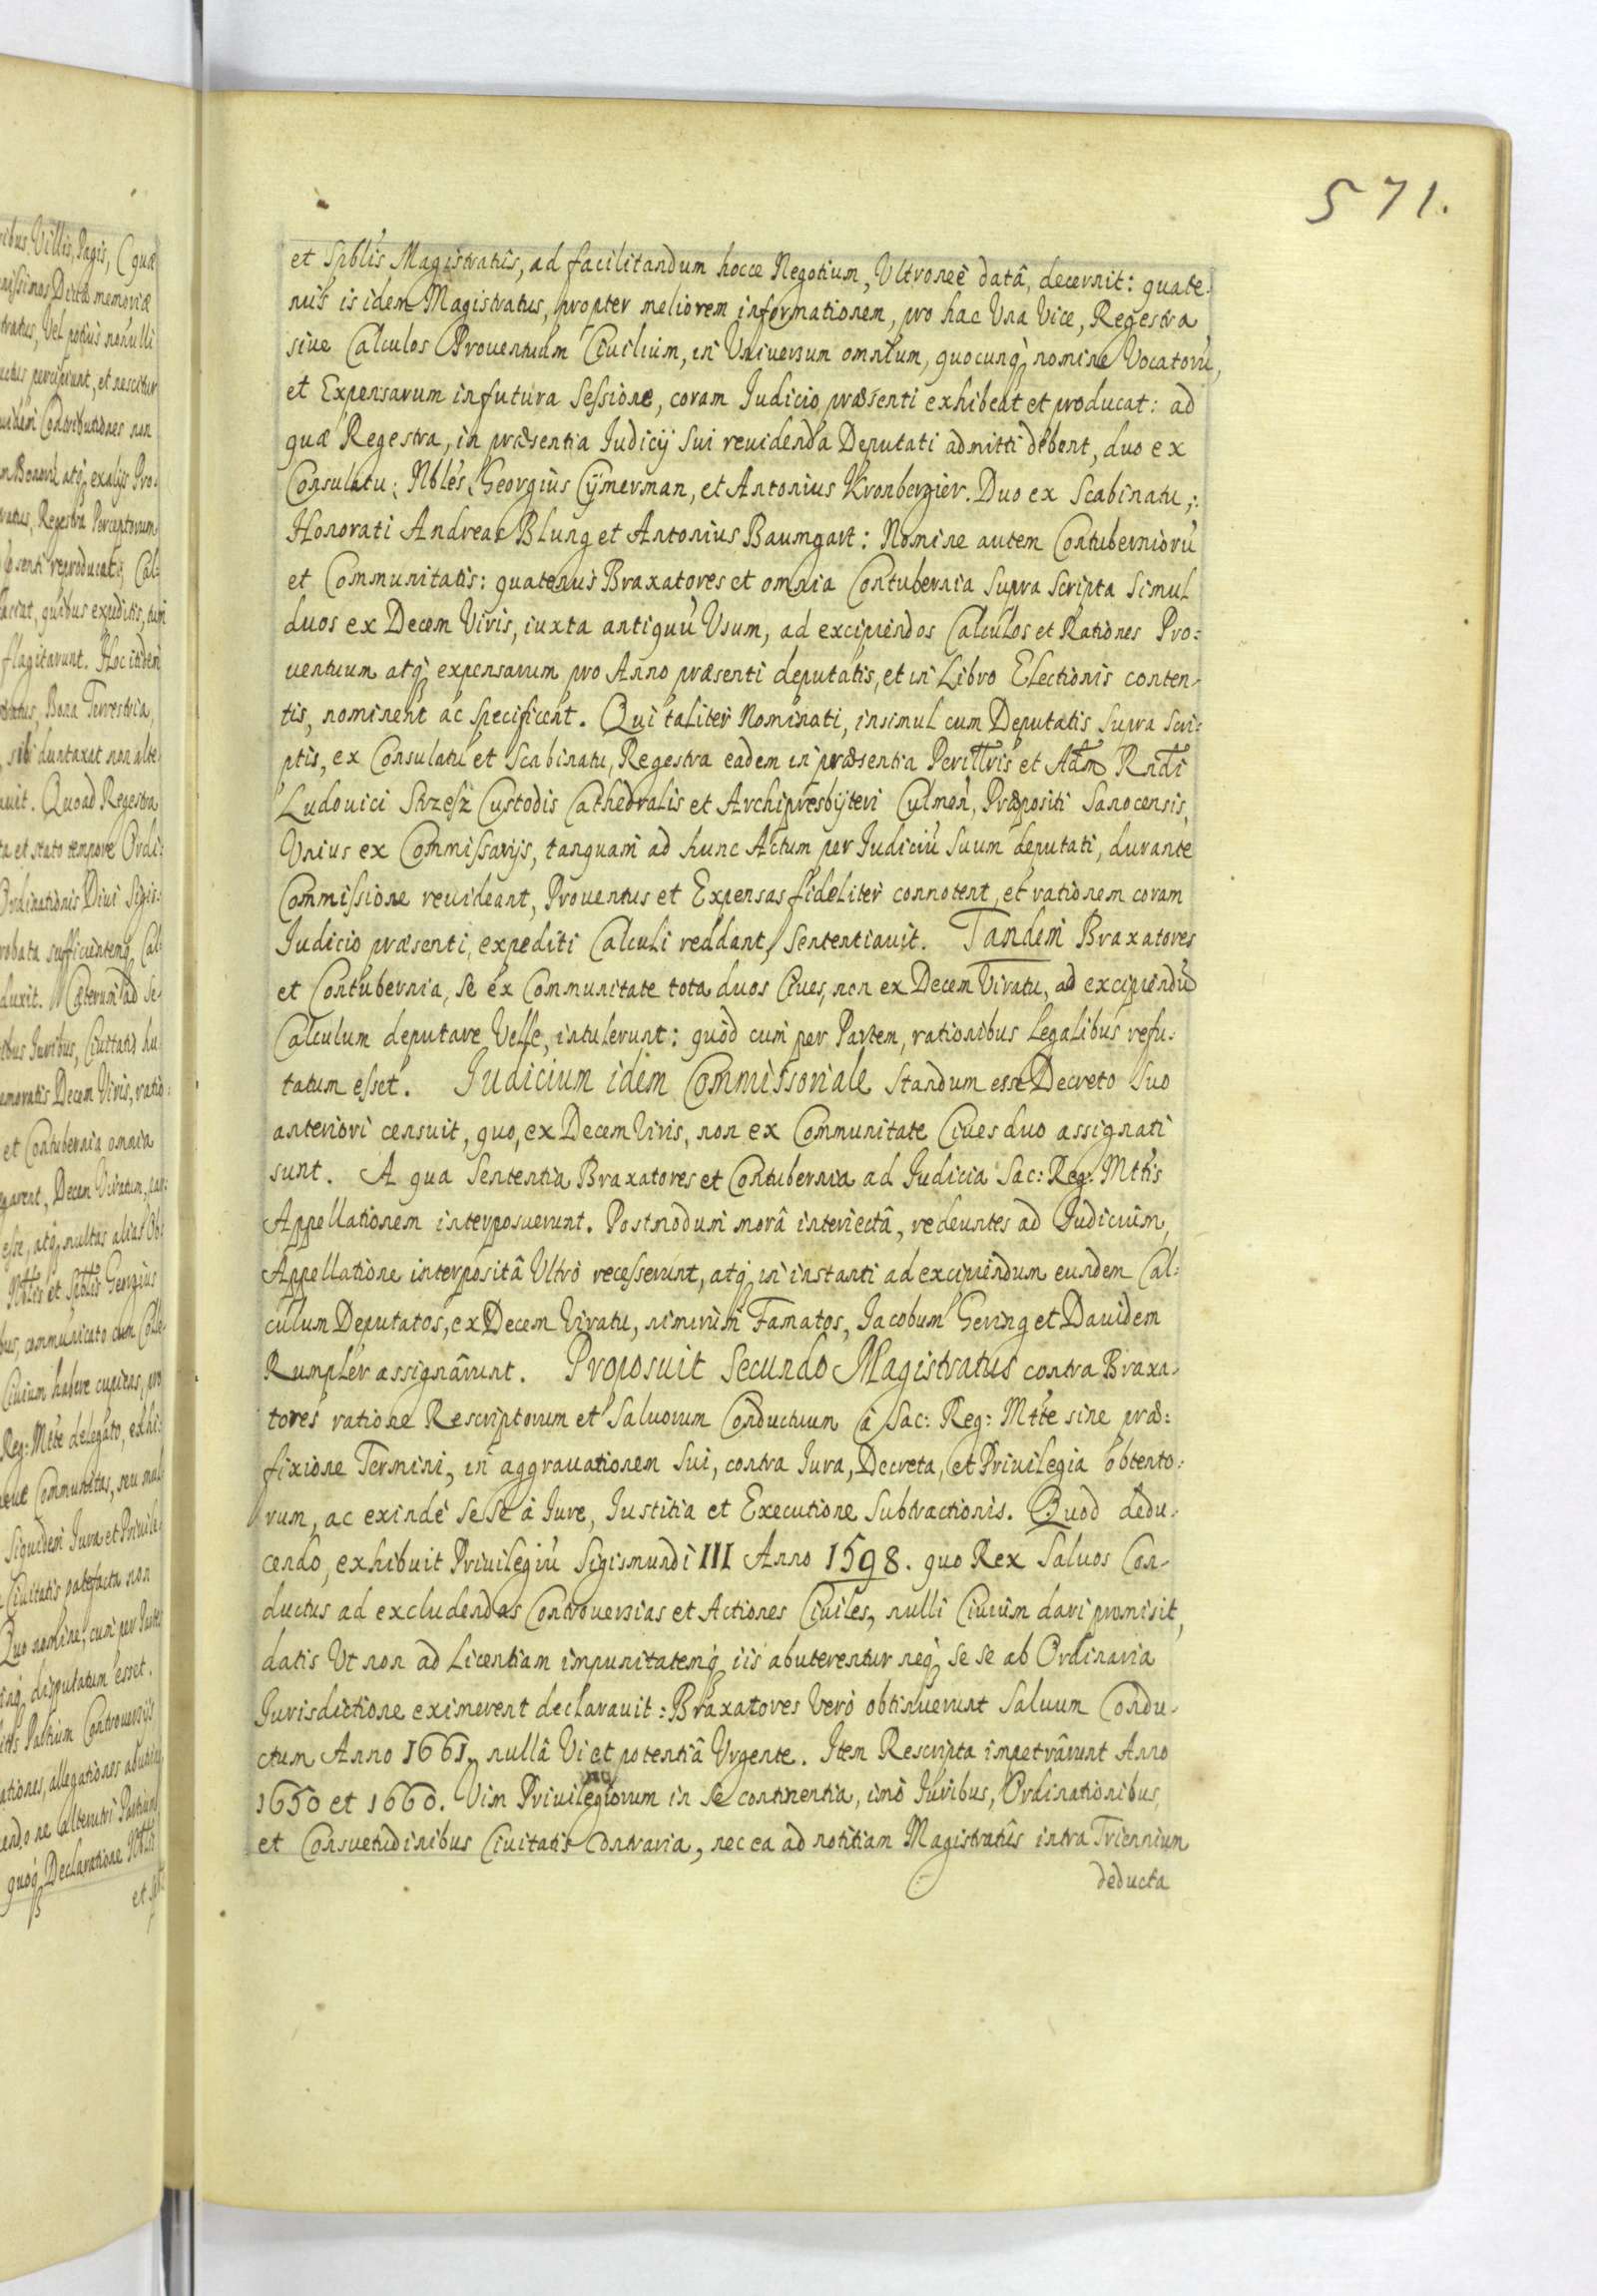 571.
et Spblis Magistratûs, ad facilitandum hocce Negotium, Ultroneè datâ, decernit: quate-
nus is idem Magistratus, propter meliorem informationem, pro hac Una Vice, Regestra
siue Calculos Prouentuum Ciuilium, in Uniuersum omnium, quocunq nomine Vocatorũ,
et Expensarum in futura Sessione, coram Judicio præsenti exhibeat et producat: ad
quæ Regestra, in præsentia Judicij Sui reuidenda Deputati admitti debent, duo ex
Consulatu: Nbles Georgius Cÿmerman, et Antonius Kronberzier. Duo ex Scabinatu,:
Honorati Andreas Blung et Antonius Baumgart: Nomine autem Contuberniorũ
et Communitatis: quatenus Braxatores et omnia Contubernia supra scripta simul
duos ex Decem Viris, iuxta antiquũ Usum, ad excipiendos Calculos et Rationes Pro:
uentuum atq expensarum pro Anno præsenti deputatis, et in Libro Electionis conten-
tis, nominent ac specificent. Qui taliter Nominati, insimul cum Deputatis supra scri-
ptis, ex Consulatu et Scabinatu, Regestra eadem in præsentia Perillris et Adm Rndi
Ludouici Strzesz Custodis Cathedralis et Archipresbÿteri Culmen, Præpositi Sanocensis,
Unius ex Commissarijs, tanquam ad hunc Actum per Judiciũ Suum deputati, durante
Commissione reuideant, Prouentus et Expensas fideliter connotent, et rationem coram
Judicio præsenti, expediti Calculi reddant, Sententiauit. Tandem Braxatores
et Contubernia, se ex Communitate tota duos Ciues, non ex Decem Viratu, ad excipiendũ
Calculum deputare Velle, intulerunt: quod cum per Partem, rationibus Legalibus refu-
tatum esset. Judicium idem Commissoriale standum esse Decreto Suo
anteriori censuit, quo, ex Decem Viris, non ex Communitate Ciues duo assignati
sunt. A qua Sententia Braxatores et Contubernia ad Judicia Sac: Reg: Mttis
Appellationem interposuerunt. Postmodum morâ interiectâ, redeuntes ad Judicium,
Appellatione interpositâ Ultrò recesserunt, atq in instanti ad excipiendum eundem Cal:
culum Deputatos, ex Decem Viratu, nimirum Famatos, Jacobum Gering et Dauidem
Rumpler assignârunt. Proposuit Secundo Magistratus contra Braxa-
tores ratione Rescriptorum et Saluorum Conductuum à Sac: Reg: Mtte sine præ:
fixione Termini, in aggrauationem Sui, contra Jura, Decreta, et Priuilegia obtento:
rum, ac exinde sese à Jure, Justitia et Executione Subtractionis. Quod dedu-
cendo, exhibuit Priuilegiũ Sigismundi III Anno 1598. quo Rex Saluos Con-
ductus ad excludendas Controuersias et Actiones Ciuiles, nulli Ciuium dari promisit,
datis Ut non ad Licentiam impunitatemq iis abuterentur neq se se ab Ordinaria
Jurisdictione eximerent declarauit: Braxatores Verò obtinuerunt Saluum Condu-
ctum Anno 1661, nullâ Vi et potentiâ Urgente. Item Rescripta impetrârunt Anno
1650 et 1660. Vim Priuilegiorum in se continentia, imò Juribus, Ordinationibus,
et Consuetudinibus Ciuitatis Contraria, nec ea ad notitiam Magistratûs intra Triennium
deducta